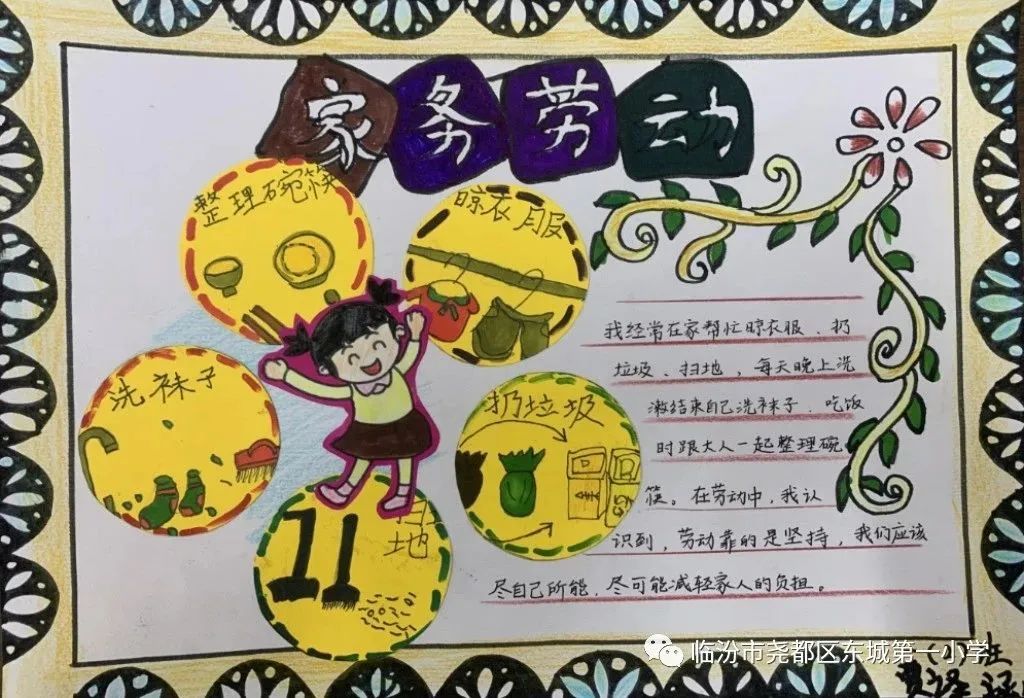 家务劳动
整理碗筷
晾衣服
洗袜子
扔垃圾
扫地
我经常在家帮忙晾衣服、扔
垃圾、扫地，每天晚上洗
漱结束自己洗袜子、吃饭
时跟大人一起整理碗
筷。在劳动中，我认
识到，劳动靠的是坚持，我们应该
尽自己所能，尽可能减轻家人的负担。
临汾市尧都区东城第一小学